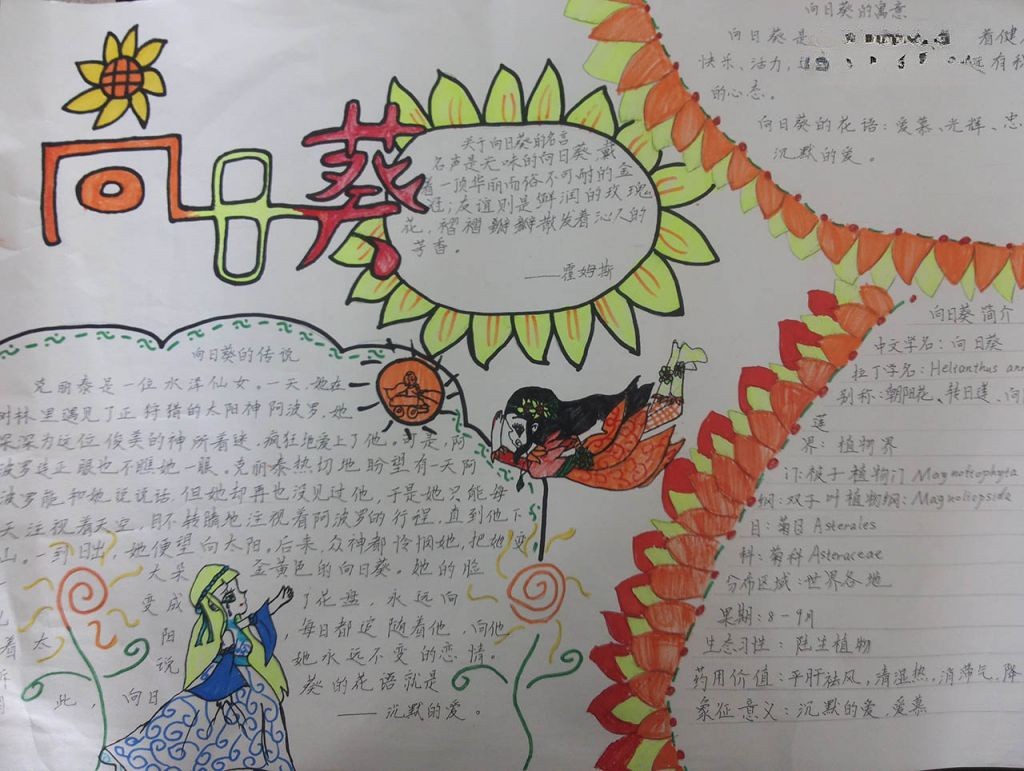 向日葵
关于向日葵的名言
名声是无味的向日葵,戴
着一顶华丽而俗不可耐的金
冠;友谊则是鲜润的玫瑰
花,褶褶瓣瓣散发着沁人的
芳香。
——霍姆斯
向日葵的寓意
向日葵是 着健
快乐、活力,
的心态。
向日葵的花语:爱慕、光辉、忠
沉默的爱。
向日葵的传说
克丽泰是一位水泽仙女。一天,她在
树林里遇见了正狩猎的太阳神阿波罗,她
深深为这位俊美的神所着迷,疯狂地爱上了他。可是,阿
波罗连正眼也不瞧她一眼。克丽泰热切地盼望有一天阿
波罗能和她说说话,但她却再也没见过他,于是她只能每
天注视着天空,目不转睛地注视着阿波罗的行程,直到他下
山。一到日出,她便望向太阳。后来,众神都怜悯她,把她变
大朵 金黄色的向日葵。她的脸
变成 了花盘,永远向
着太 阳 ,每日都追随着他,向他
说 她永远不变的恋情。
此,向日 葵的花语就是
——沉默的爱。
向日葵简介
中文学名:向日葵
拉丁学名:Helianthus
别称:朝阳花、转日莲、向
莲
界:植物界
门:被子植物门 Magnoliophyta
纲:双子叶植物纲:Magnoliopsida
目:菊目 Asterales
科:菊科 Asteraceae
分布区域:世界各地
果期:8-9月
生态习性:陆生植物
药用价值:平肝祛风,清湿热,消滞气。降
象征意义:沉默的爱,爱慕